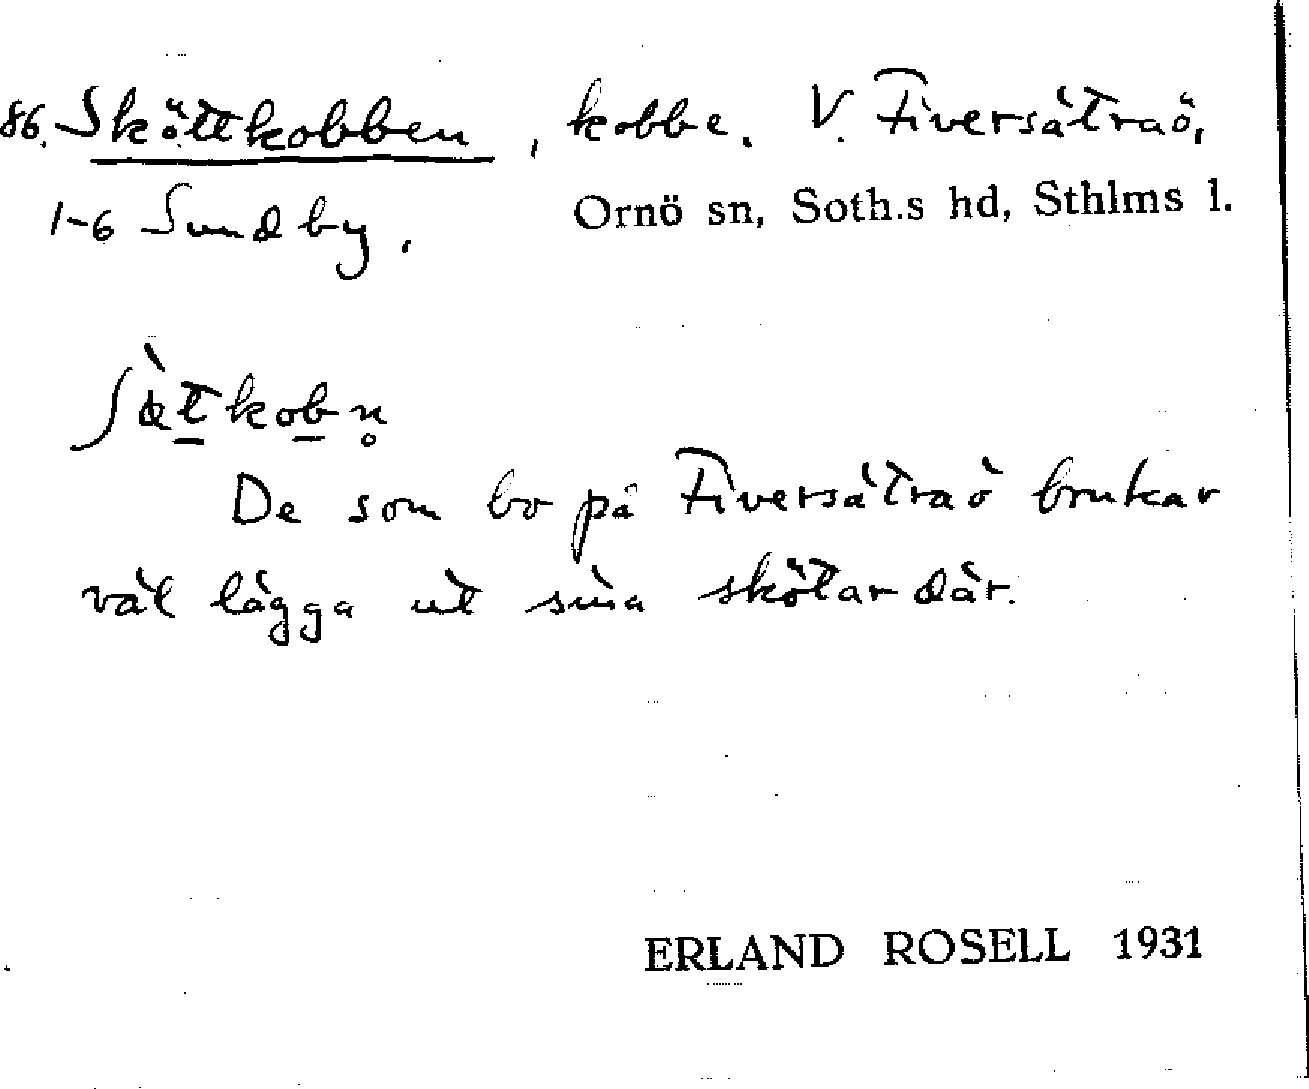 86. Sköttkobben, kobbe. V. Fiversätraö,
1-6 Sundby. Ornö sn, Soth.s hd, Sthlms l.
De som bo på Fiversätraö brukar
väl lägga ut sina skötar där.
ERLAND ROSELL 1931